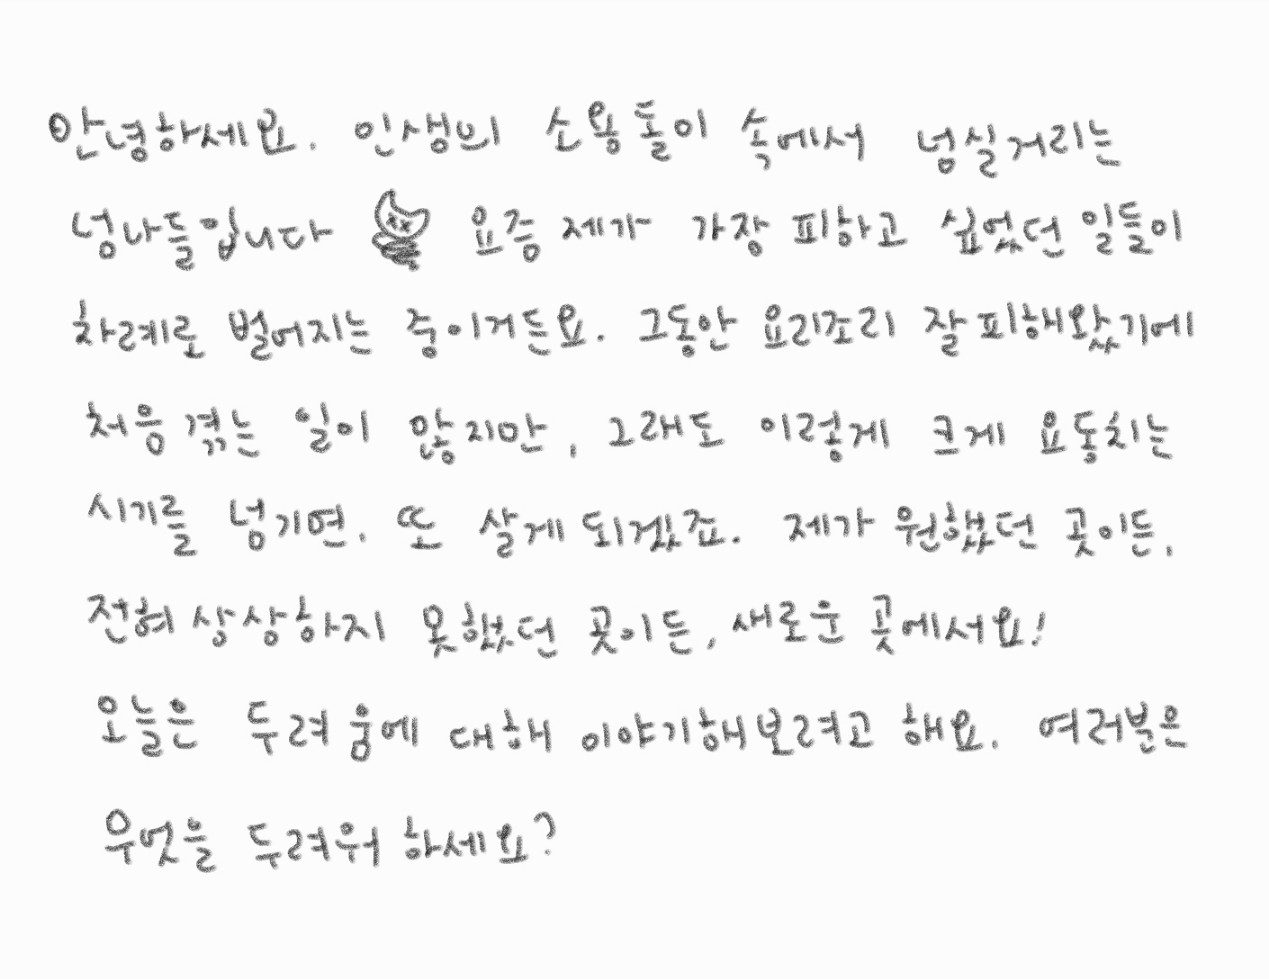 안녕하세요. 인생의 소용돌이 속에서 넘실거리는
넝나들입니다 요즘 제가 가장 피하고 싶었던 일들이
차례로 벌어지는 중이거든요. 그동안 요리조리 잘 피해왔기에
처음 겪는 일이 많지만, 그래도 이렇게 크게 요동치는
시기를 넘기면, 또 살게 되겠죠. 제가 원했던 곳이든,
전혀 상상하지 못했던 곳이든, 새로운 곳에서요!
오늘은 두려움에 대해 이야기해보려고 해요. 여러분은
무엇을 두려워 하세요?